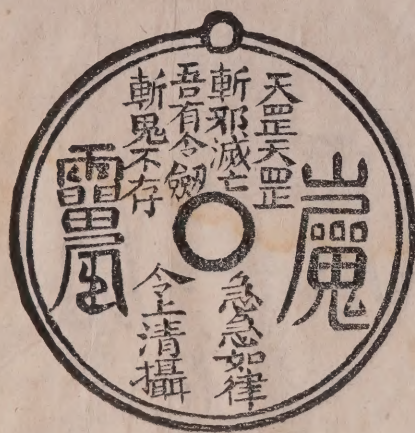 天罡天罡
斬邪滅亡
吾有令劔
斬鬼不存
急急如律
令上清攝